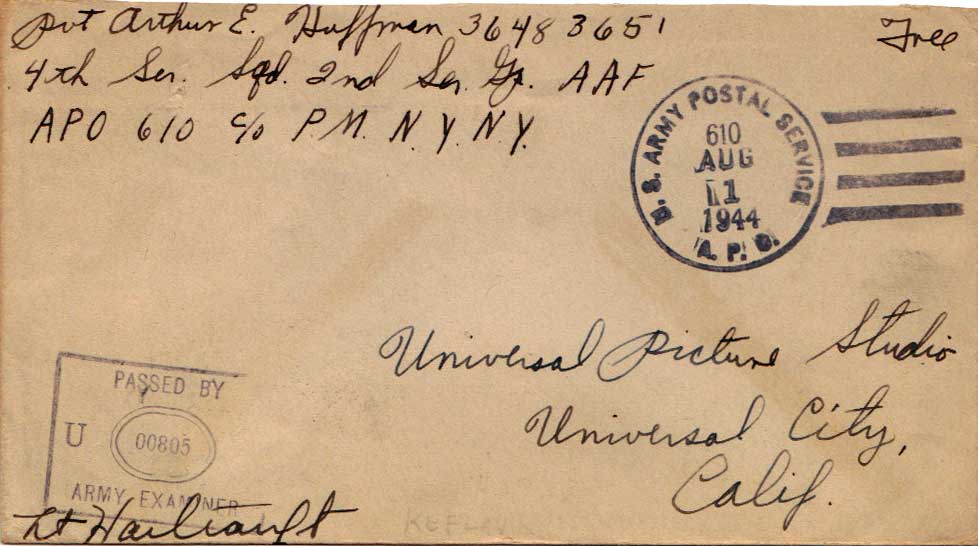 Pvt Arthur E. Huffman 36483651
Free
4th Ser. Sqd. 2nd Ser. Gp. AAF
APO 610 c/o P.M. N.Y. N.Y.
U. S. ARMY POSTAL SERVICE
610
AUG
11
1944
A. P. O.
Universal Picture Studio
Universal City,
Calif.
PASSED BY
U 00805
ARMY EXAMINER
Lt